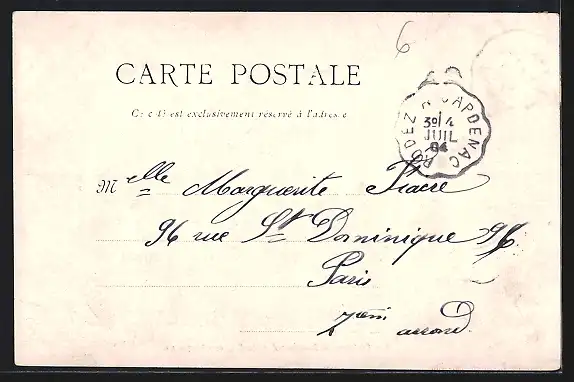 6
CARTE POSTALE
Ce côté est exclusivement réservé à l'adresse
RODEZ A CAPDENAC
3° / 4
JUIL
04
Melle Marguerite Fiacre
96 rue St Dominique 96
Paris
7em arrond.